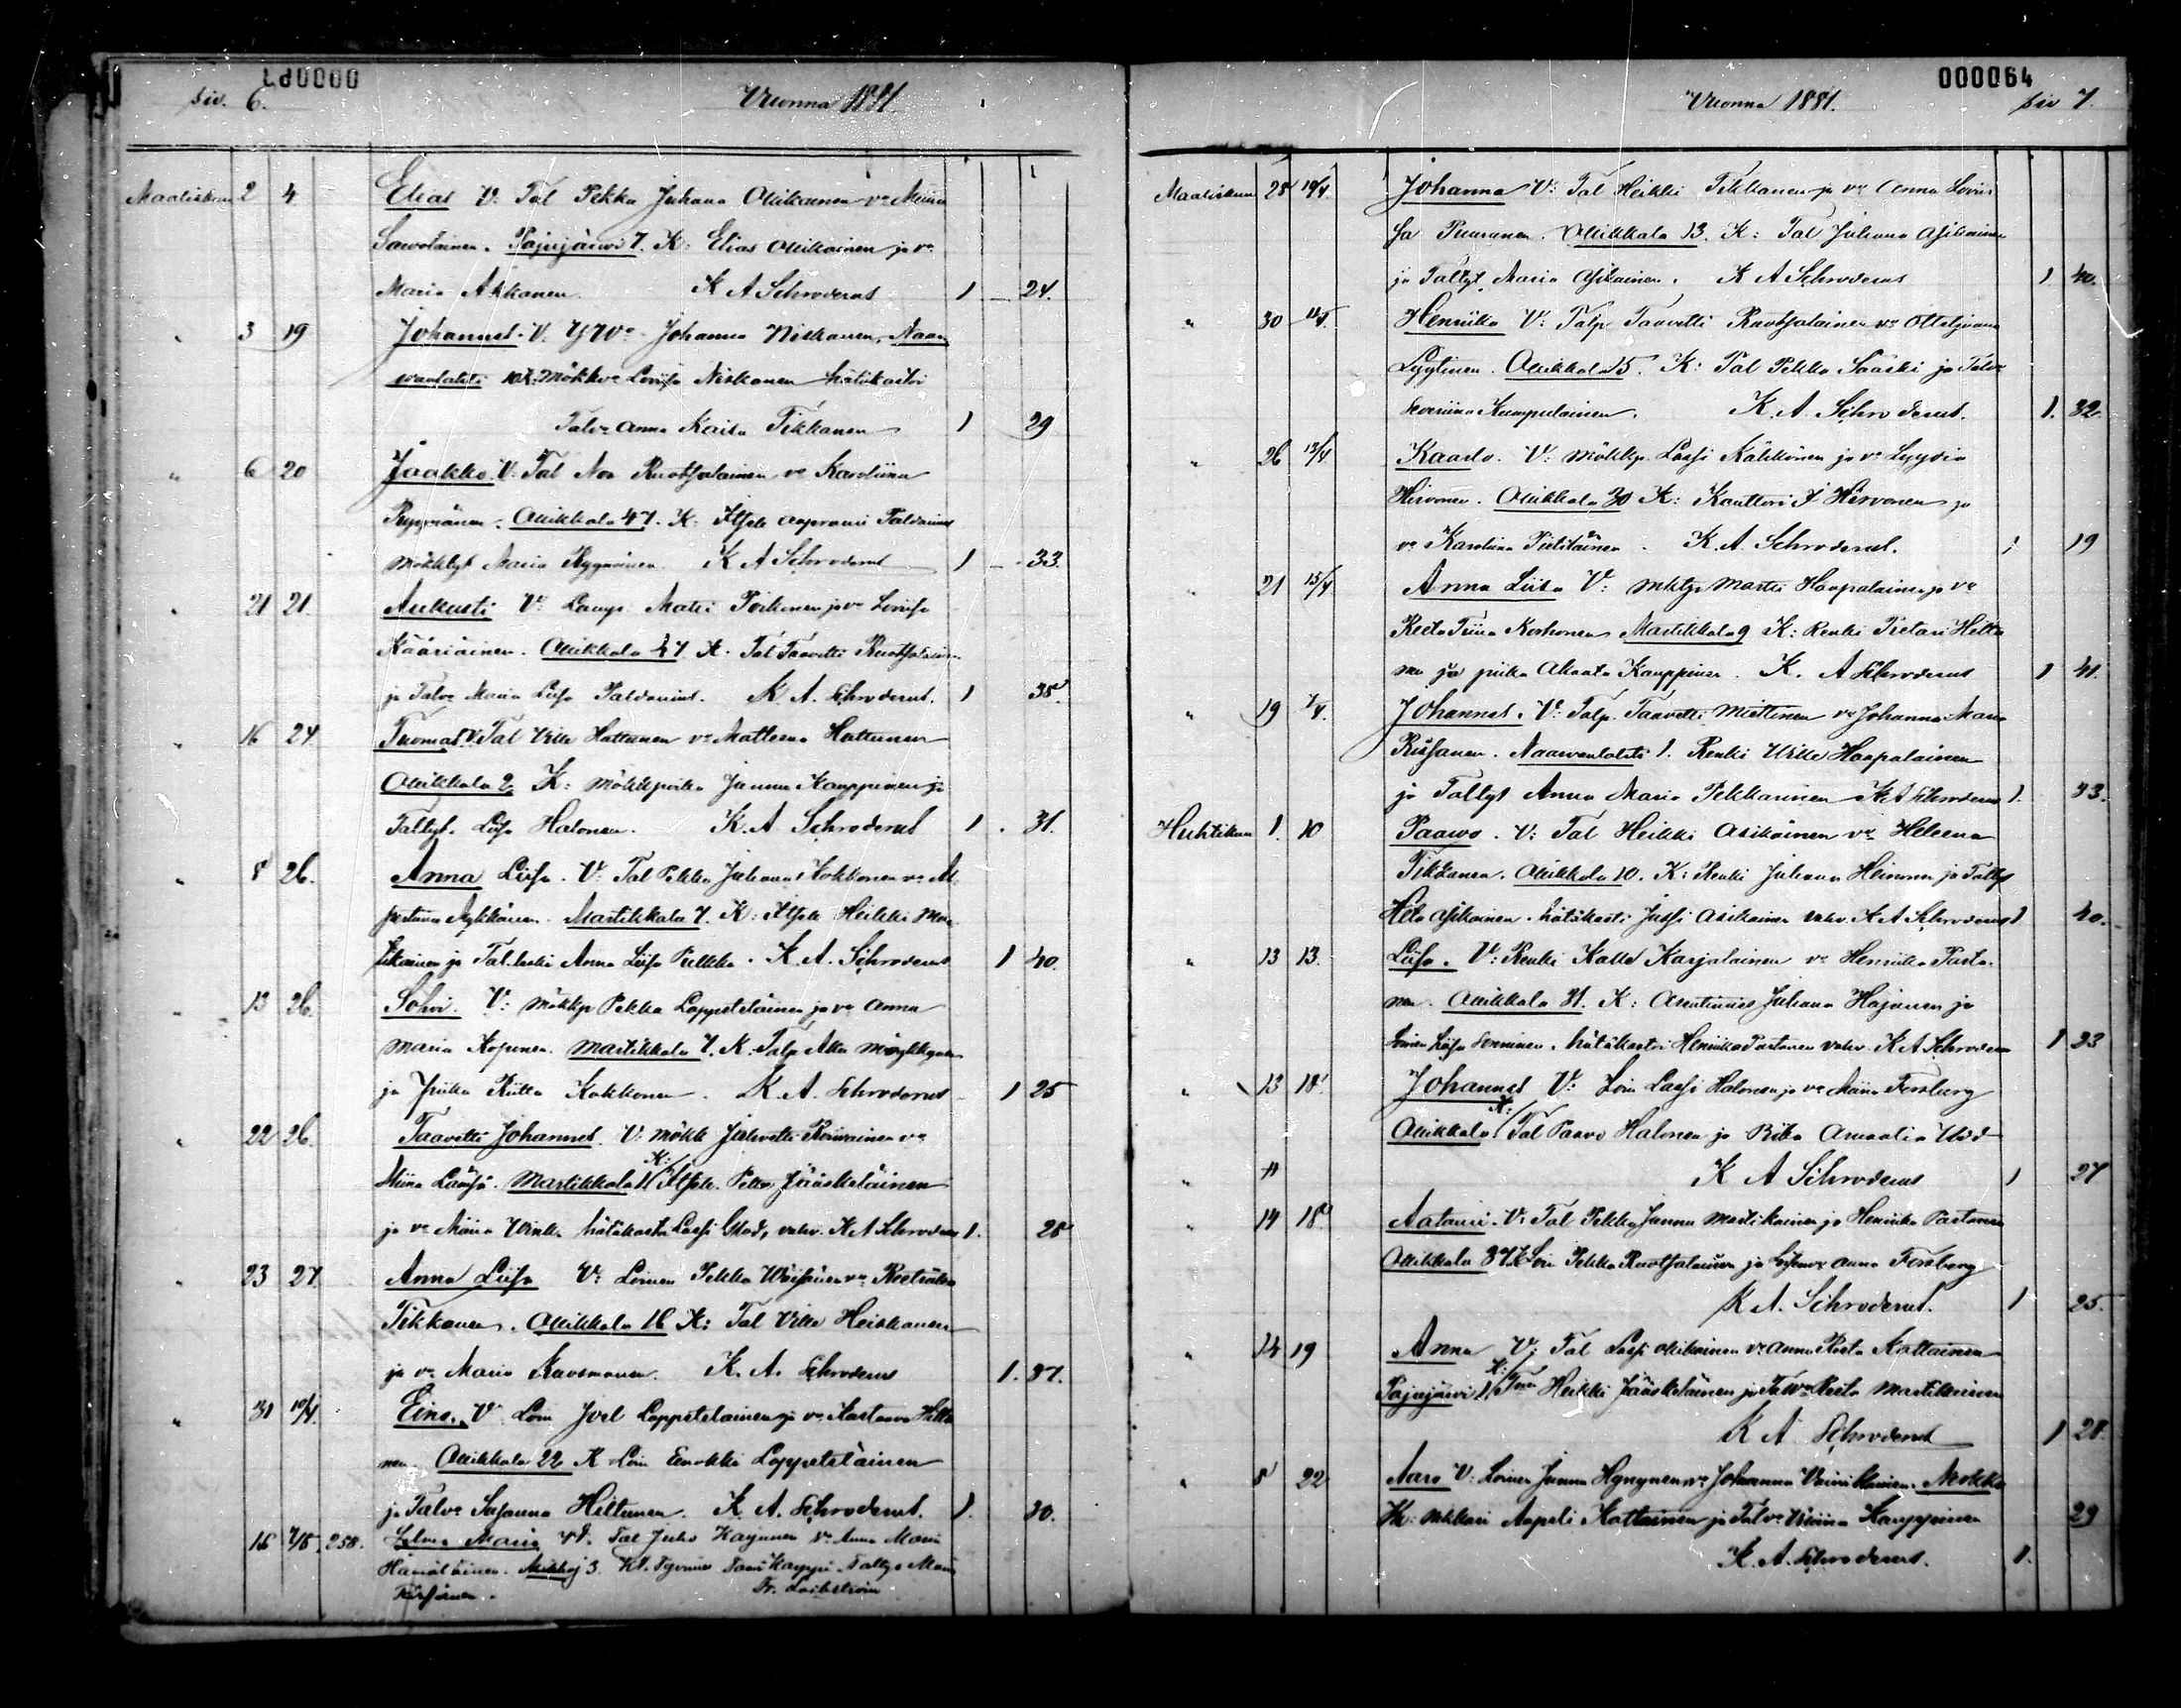 siv. 6. Vuonna 1881.
Maaliskuu 2 4 Elias V: Tal Pekka Juhana Ollikainen va Miina
Sawolainen. Pajujärwi 7. K: Elias Ollikainen ja va
Maria Akkanen. K A Schroderus 1 24.
" 3 19 Johannes. V. Johanna Niskanen, Naar
wanlahti 10 K: Mökkva Loviisa Niskanen hätäkastoi
Talva Anna Kaisa Tikkanen 1 29
" 6 20 Jaakko. V: Tal Noa Ruotsalainen va Karoliina
Ryynänen. Ollikkala 47. K: Itsell Aaprami Paldanius
Mökktyt Maria Ryynänen. K A Schroderus 1 33.
" 21 21. Aukusti V: Matti va Loviisa
Kääriäinen. Ollikkala 47 K: Tal Taavetti Ruotsalainen
ja Talva Maria Liisa Paldanius. K. A. Schroderus. 1 35.
" 16 24 Tuomas V: Tal Ville Hattunen va Matleena Hattunen
Ollikkala 2. K: Mökkpoika Janne Kauppinen ja
Taltyt. Liisa Halonen. K. A Schroderus 1 31.
" 8 26. Anna Liisa. V: Tal Pekka Juhana Kokkonen va Al
pertiina Mykkänen. Martikkala 7. K: Itsell Heikki Mar
tikainen ja Tal. leski Anna Liisa Pulkka. K. A. Schroderus 1 40.
" 13 26. Sohvi. V: Mökkp Pekka Lappeteläinen ja va Anna
Maria Koponen. Martikkala 7. K: Talp Aku Mykkänen
ja piika Riitta Kokkonen. K. A. Schroderus 1 25
" 22 26. Taavetti Johannes. V: Mökk Juhvetti va
Miina Lämsä. Martikkala 11 K: Itsell. Pekka Jääskeläinen
ja va Miina hätäkaste Lassi vahv. K A Schroderus 1. 28
" 23 27. Anna Liisa V: Loinen Pekka Väisänen va Reetriikka
Tikkanen. Ollikkala 16 K: Tal Ville Heiskanen
ja va Maria Rausmanen. K. A. Schroderus 1. 37.
" 31 10/4. Eino. V. Loin Joel Lappeteläinen ja va Kustaava Hiltu
nen. Ollikkala 22 K Loin Enokki Lappeteläinen
ja Talva Susanna Hiltunen. K. A. Schroderus. 1. 30.
16 7/5. 258. Selma Maria Tal Juho va Anna Maria
Hämäläinen. 3. Kauppi Taltyt Maria

000064
Vuonna 1881. siv 7.
Maaliskuu 28 10/4. Johanna V: Tal Heikki Tikkanen ja va Anna Loviis
sa Puuranen. Ollikkala 13. K: Tal Juhana Asikainen
ja Taltyt Maria Asikainen. K A Schroderus 1 40.
" 30 Henriikka V: Talp Taavetti Ruotsalainen va Ottiljaana
Lyytinen. Ollikkala 15. K: Tal Pekka Sääski ja Talva
Severiina Kumpulainen. K. A. Schroderus. 1. 32.
" 26 13/4 Kaarlo. V: Mökkp. Lassi Kähkönen ja va Lyydia
Hirvonen. Ollikkala 30 K: Kanttori J Hirvonen ja
va Karoliina Pietiläinen. K. A. Schroderus. 1 19
" 21 15/4 Anna Liisa V: Martti Haapalainen ja va
Reeta Tiina Korhonen Martikkala 9 K: Renki Pietari Hiltu
nen ja piika Akaata Kauppinen. K. A Schroderus 1 41.
" 19 Johannes. V: Talp. Taavetti Miettinen va Johanna Maria
Riissanen. Naarwanlahti 1. Renki Ville Haapalainen
ja Taltyt Anna Maria Pekkarinen K A Schroderus 1. 33.
Huhtikuu 1. 10 Paavo. V: Tal Heikki Asikainen va Heleena
Tikkanen. Ollikkala 10. K: Renki Juhana Heinonen ja Taltyt
Heta Asikainen. hätäkasti Jussi Asikainen vahv. K A Schroderus 1 40.
" 13 13. Liisa. V: Renki Kalle Karjalainen va Henriikka Parta
nen. Ollikkala 31. K: Juhana ja
Liisa hätäkastoi Henriikka Partanen vahv. K A Schroderus 1 23
" 13 18. Johannes V: Loin Lassi Halonen ja va Miina Forsberg
Ollikkala K: Tal Paavo Halonen ja Riika Amalia
" " K A Schroderus 1 27
" 14 18 Aatami. V: Tal Pekka Janne Martikainen ja Henriikka Partanen
Ollikkala 37 K: Loin Pekka Ruotsalainen ja Anna Forsberg
K A. Schroderus. 1 25.
" 14 19 Anna V: Tal Lassi Ollikainen va Anna Reeta Kattainen
Pajujärwi 1 K: Heikki Jääskeläinen ja Talva Reeta Martikainen
K A Schroderus 1 28.
" 8 22 Aaro V: Loinen Janne Hynynen va Johanna
K: Aapeli Kattainen ja Talva Miina Kauppinen 29
K. A. Schroderus. 1.